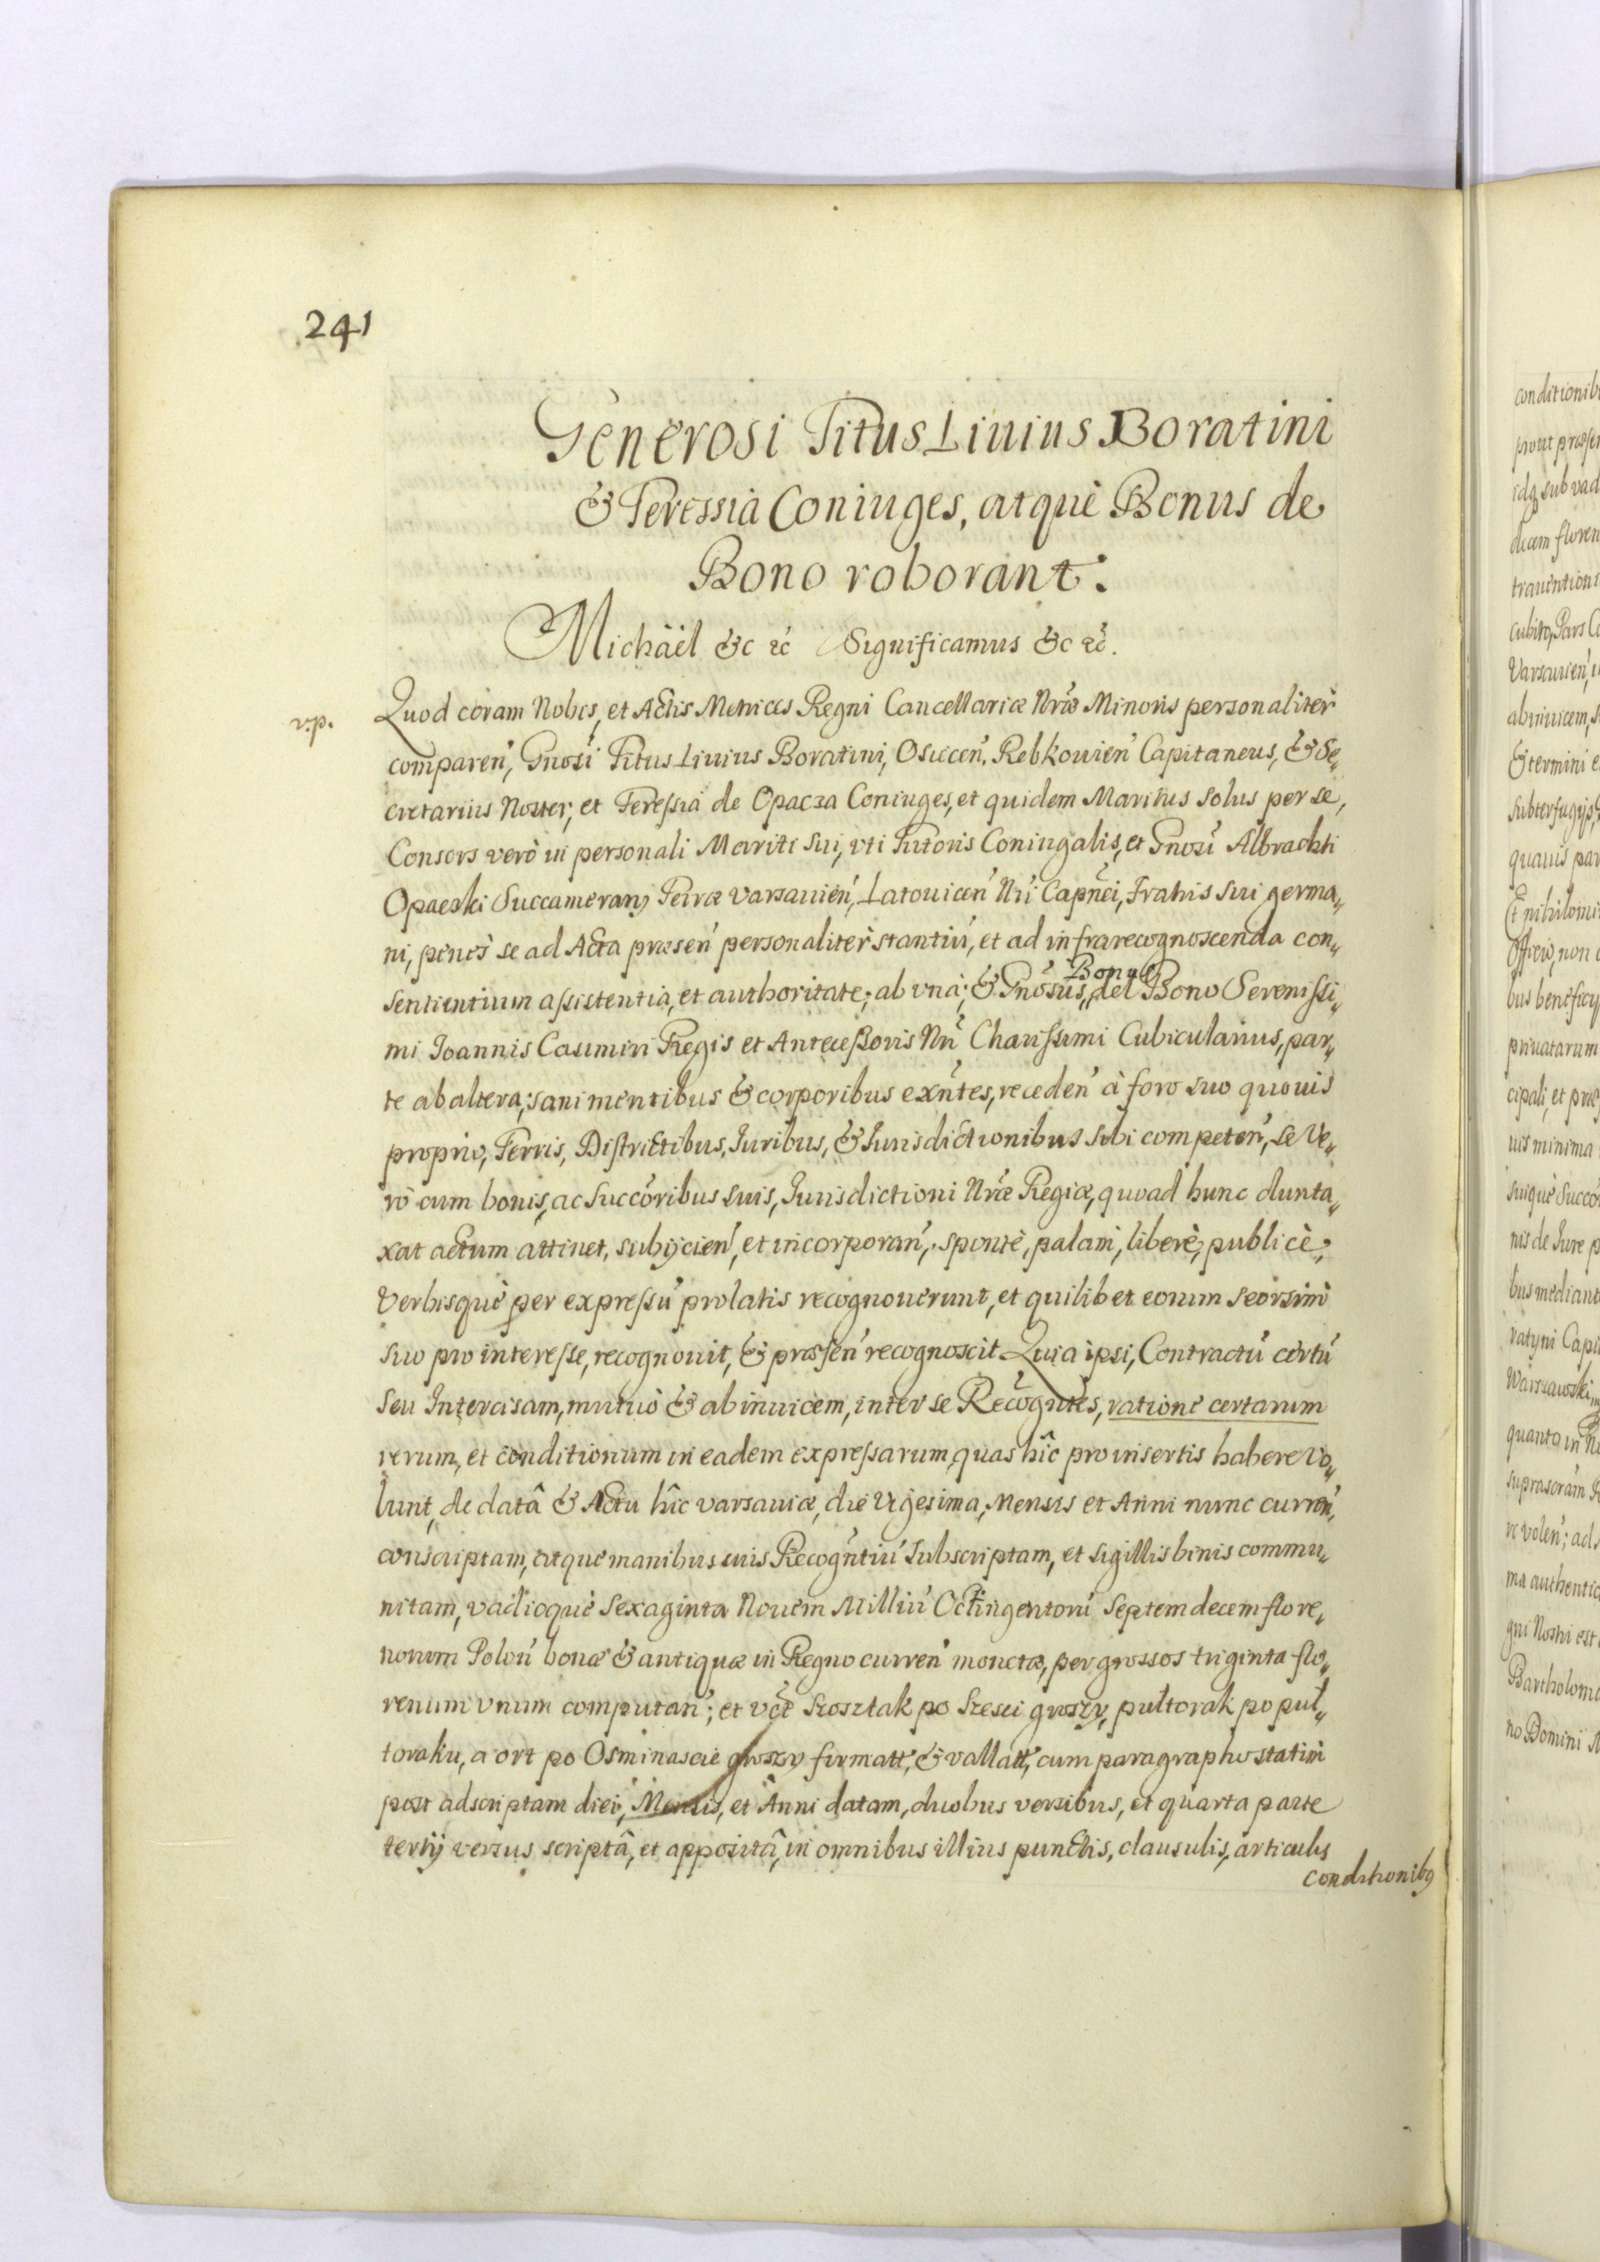 241
Generosi Titus Liuius Boratini
& Teressia Coniuges, atquè Bonus de
Bono roborant.
Michäel &c &c Significamus &c &c.
v.p.
Quod coram Nobis, et Actis Metrices Regni Cancellariæ Nræ Minoris personaliter
comparen, Gnosi Titus Liuius Boratini, Osiecen. Rebkouien Capitaneus, & Se„
cretarius Noster, et Teressia de Opacza Coniuges, et quidem Maritus solus per se,
Consors verò in personali Mariti sui, vti Tutoris Coniugalis, et Gnosi Albrachti
Opacski Succamerarij Terræ Varsauien, Latouicen Nri Capnei, Fratris sui germa„
ni, penes se ad Acta præsen personaliter stantiu, et ad infrarecognoscenda con„
sentientium assistentia, et authoritate; ab vna; & Gnosus, Bonus del Bono Serenissi„
mi Joannis Casimiri Regis et Antecessoris Nri Charissimi Cubicularius, par„
te ab altera; sani mentibus & corporibus exntes, receden à foro suo quouis
proprio, Terris, Districtibus, Juribus, & Jurisdictionibus sibi competen, se ve„
rò cum bonis, ac succoribus suis, Jurisdictioni Nræ Regiæ, quoad hunc dunta„
xat actum attinet, subijcien, et incorporan, spontè, palam, liberè, publicè,
Verbisquè per expressu prolatis recognouerunt, et quilibet eorum seorsim
suo pro interesse, recognouit, & præsen recognoscit Quia ipsi, Contractu certu
seu Intercisam, mutuò & abinuicem, inter se Recogntes, ratione certarum
rerum, et conditionum in eadem expressarum, quas hîc pro insertis habere vo„
lunt, de datâ & Actu hîc varsauiæ, die Vigesima, Mensis et Anni nunc curren,
conscriptam, atque manibus suis Recogntiu subscriptam, et sigillis binis commu„
nitam, vadioquè Sexaginta Nouem Milliu Octingentoru Septemdecem flore„
norum Polon bonæ & antiquæ in Regno curren monetæ, per grossos triginta flo„
renum vnum computan; et vct Szosztak po Szesci groszy, pułtorak po puł„
toraku, a ort po Osminascie groszy firmatt, & vallatt, cum paragrapho statim
post adscriptam diei, Mensis, et Anni datam, duobus versibus, et quarta parte
tertij versus scriptâ, et appositâ, in omnibus illius punctis, clausulis, articulis
conditionibq